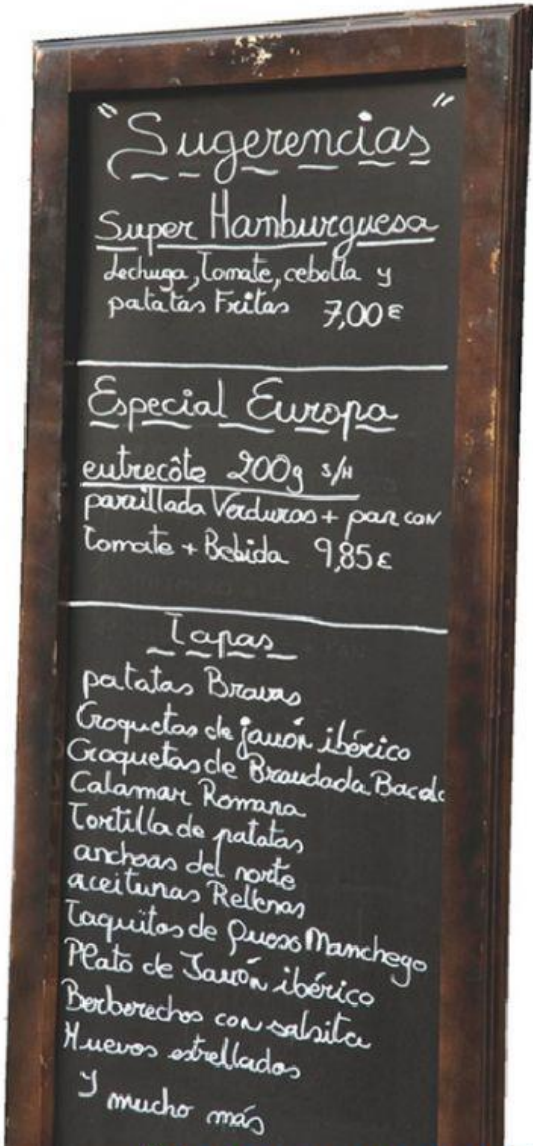 "Sugerencias"
Super Hamburguesa
Lechuga, Tomate, cebolla y
patatas Fritas 7,00€
Especial Europa
entrecôte 200g s/H
parrillada Verduras + pan con
Tomate + Bebida 9,85€
Tapas
patatas Bravas
Croquetas de jamón ibérico
Croquetas de Brandada Bacala
Calamar Romana
Tortilla de patatas
anchoas del norte
aceitunas Rellenas
Taquitos de Queso Manchego
Plato de Jamón ibérico
Berberechos con salsita
Huevos estrellados
y mucho más